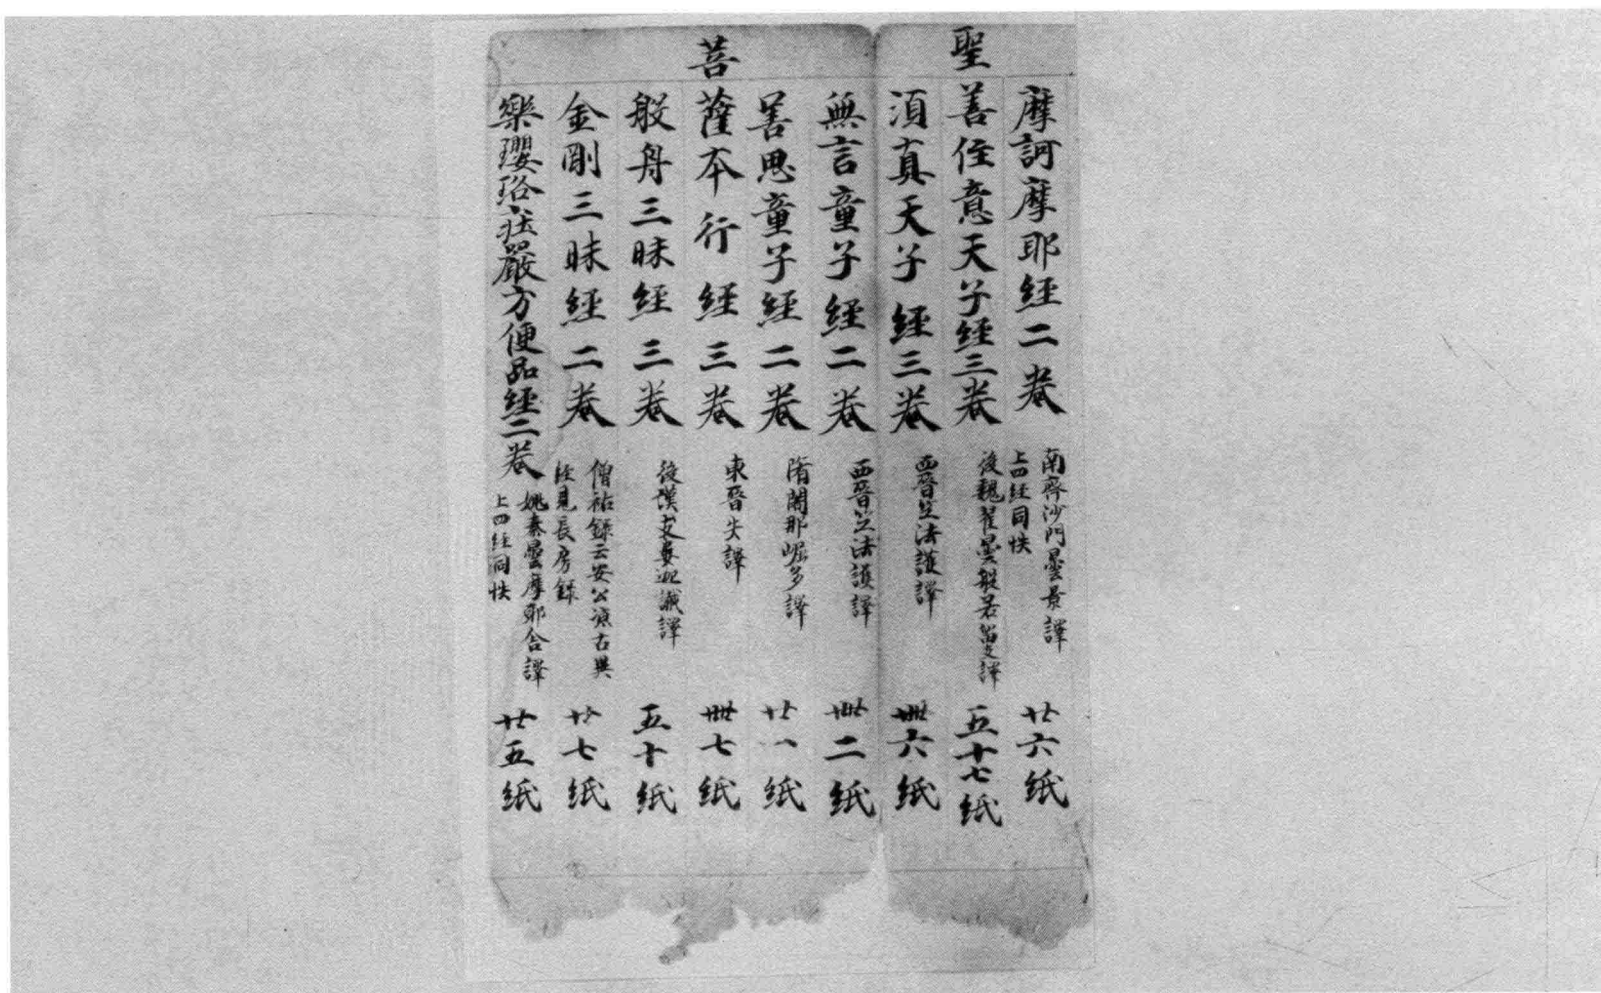 摩訶摩耶經二卷 南齊沙門曇景譯 上四經同帙 廿六紙
聖善住意天子經三卷 後魏瞿曇般若留支譯 五十七紙
須真天子經三卷 西晉竺法護譯 卌六紙
無言童子經二卷 西晉竺法護譯 卌二紙
善思童子經二卷 隋闍那崛多譯 廿一紙
菩薩本行經三卷 東晉失譯 卌七紙
般舟三昧經三卷 後漢支婁迦讖譯 五十紙
金剛三昧經二卷 僧祐錄云安公涼古典經見長房錄 廿七紙
樂瓔珞莊嚴方便品經二卷 姚秦曇摩耶舍譯 上四經同帙 廿五紙